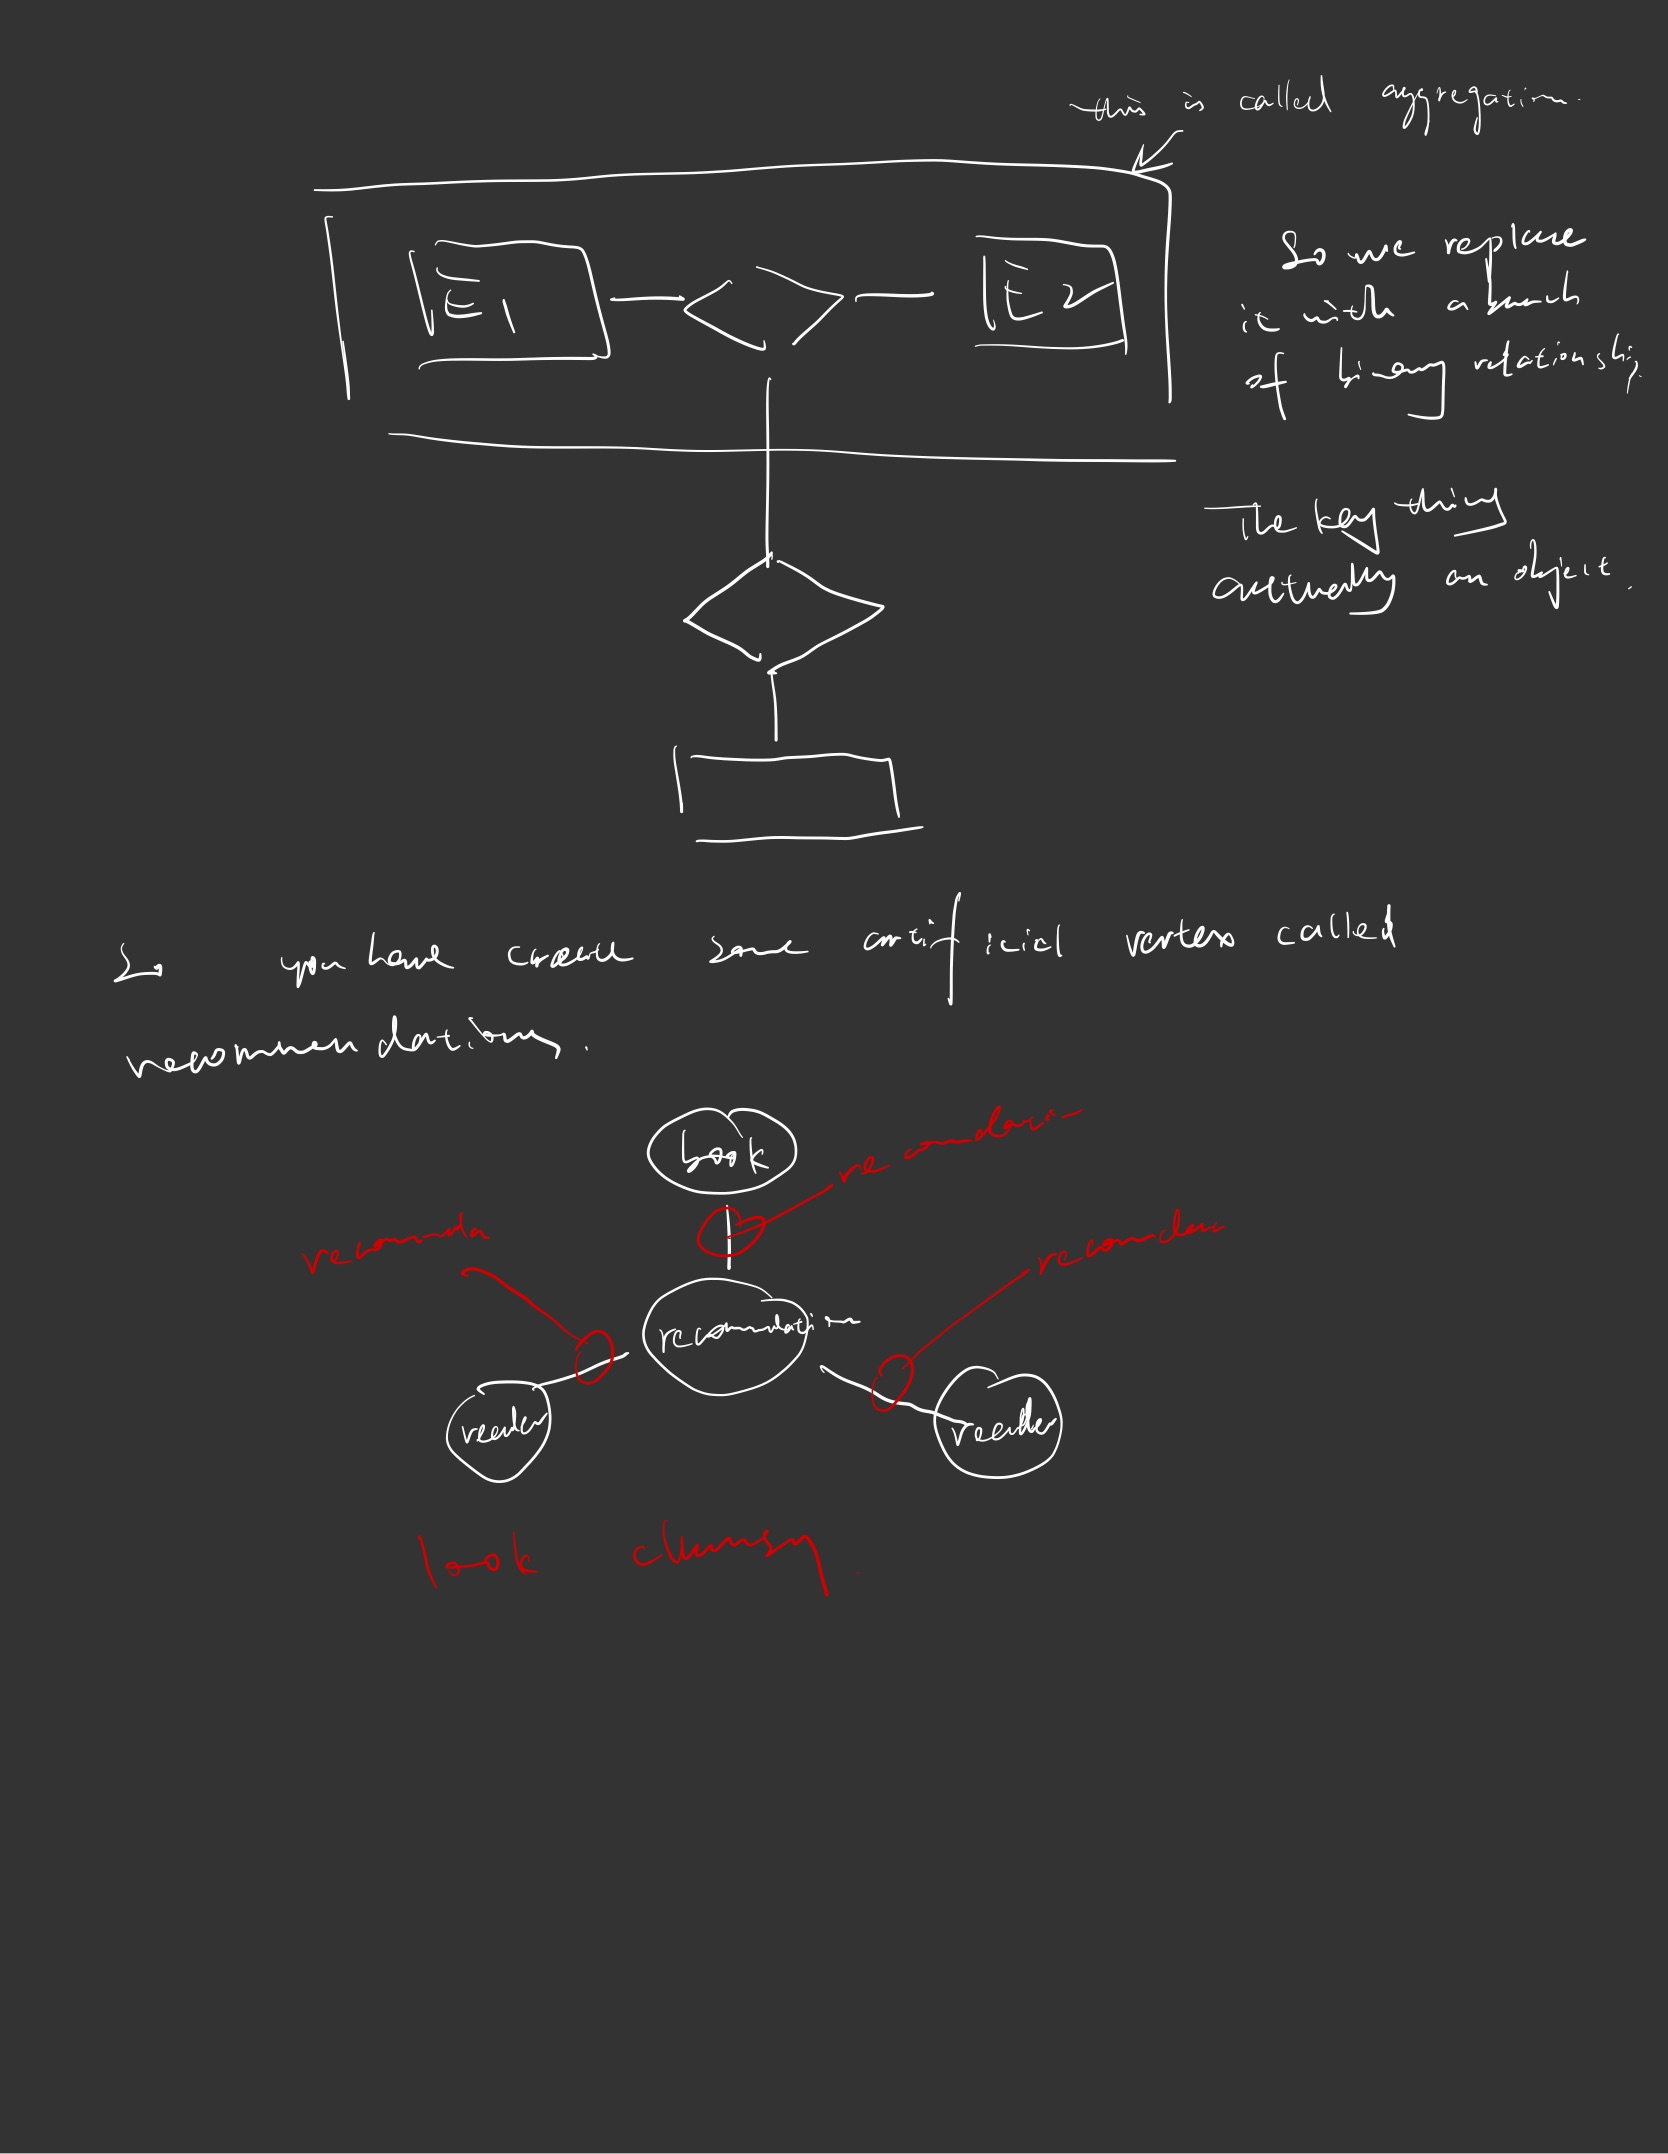 this is called aggregation.
E1
E2
So we replace
it with a bunch
of binary relationship.
The key thing
actually an object.
So you have create some artificial vertex called
recommendations.
book
reader
reader
look clumsy.